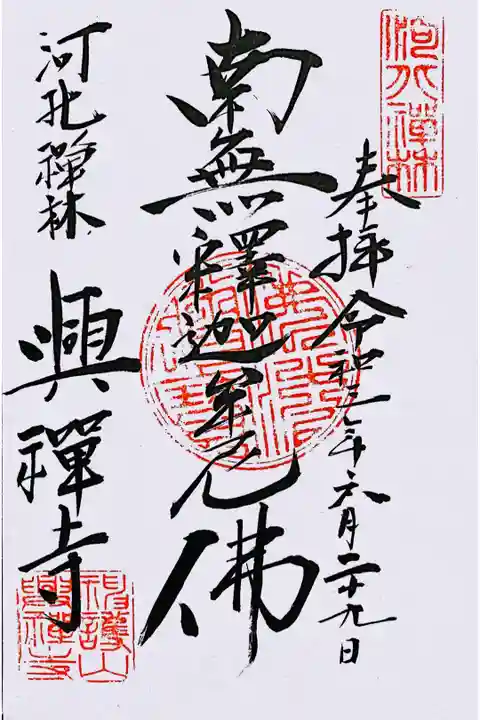 河北禅林
奉拝 令和三年六月二十九日
南無釋迦牟尼佛
河北禅林
興禅寺